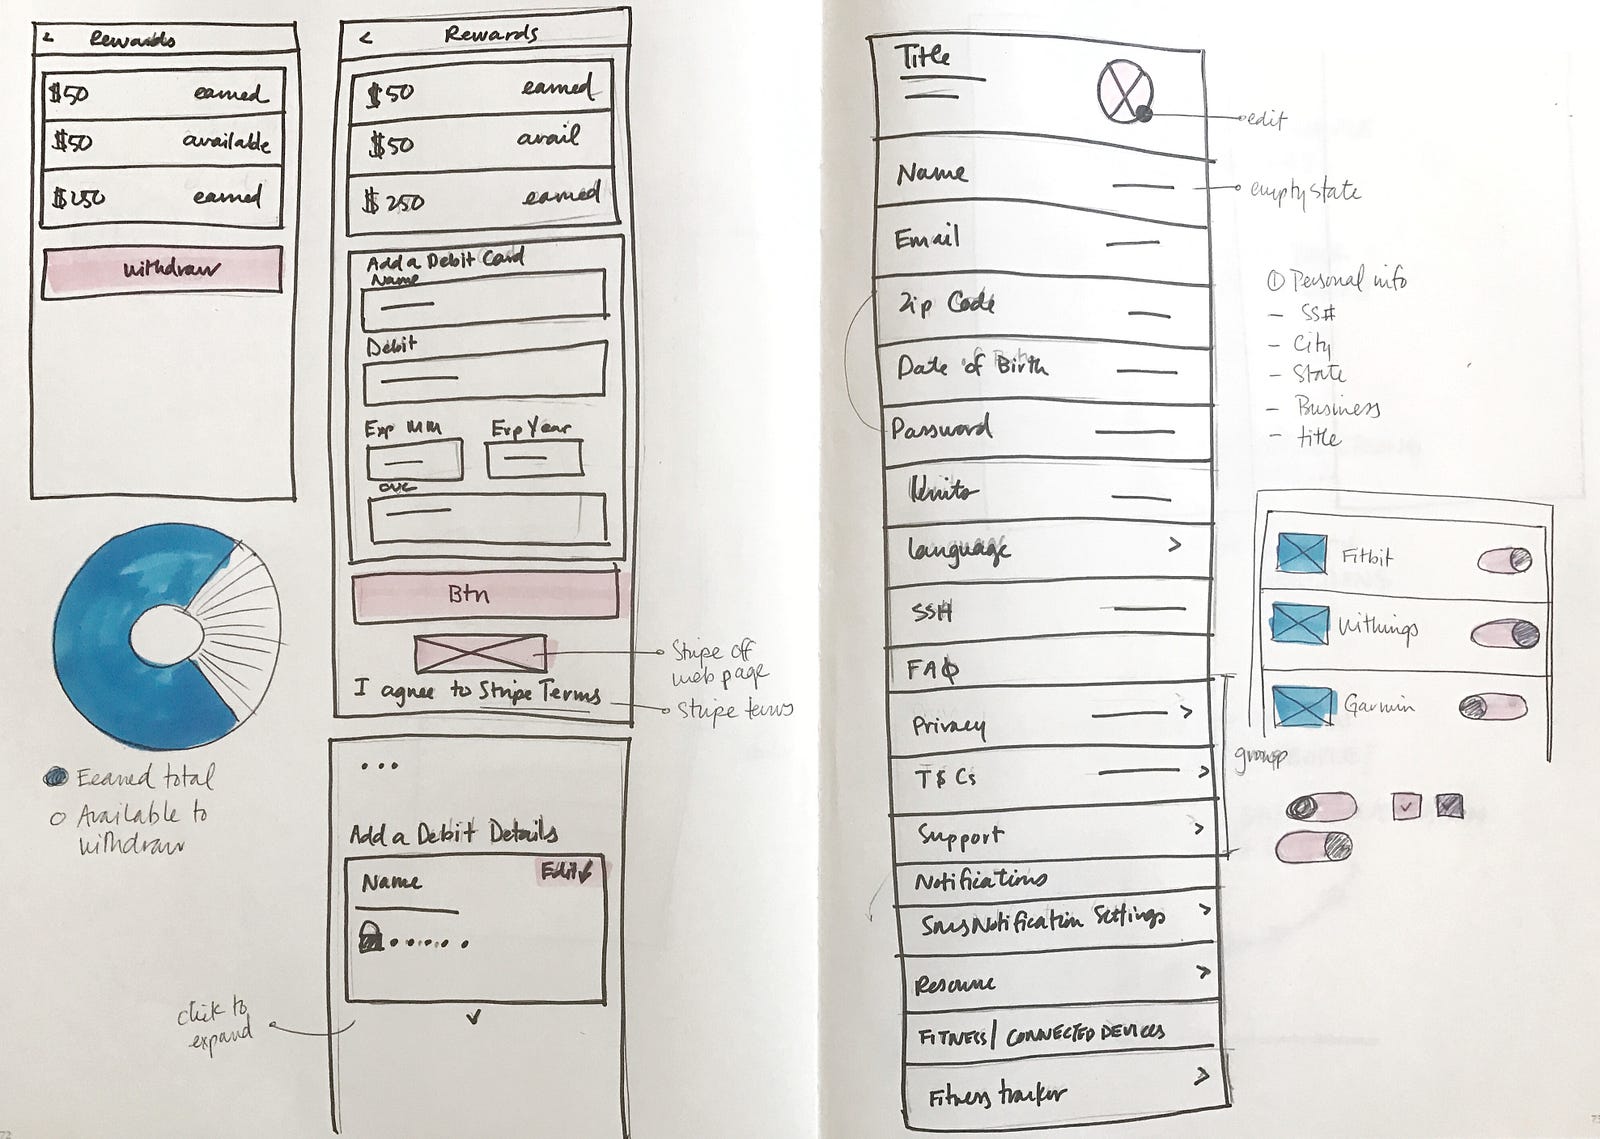 < Rewards
$50 earned
$50 available
$250 earned
withdraw
Earned total
Available to
withdraw
< Rewards
$50 earned
$50 avail
$250 earned
Add a Debit Card
Name
Debit
Exp MM Exp Year
CVC
Btn
I agree to Stripe Terms
Stripe off
web page
Stripe terms
...
Add a Debit Details
Name Edit
click to
expand
72
Title
edit
Name
empty state
Email
Zip Code
Date of Birth
Password
Units
Language >
SS#
FAQ
Privacy >
T&Cs >
Support >
Notifications
Sms Notification Settings >
Resource >
FITNESS/ CONNECTED DEVICES
Fitness tracker >
group
① Personal info
- SS#
- City
- State
- Business
- title
Fitbit
Withings
Garmin